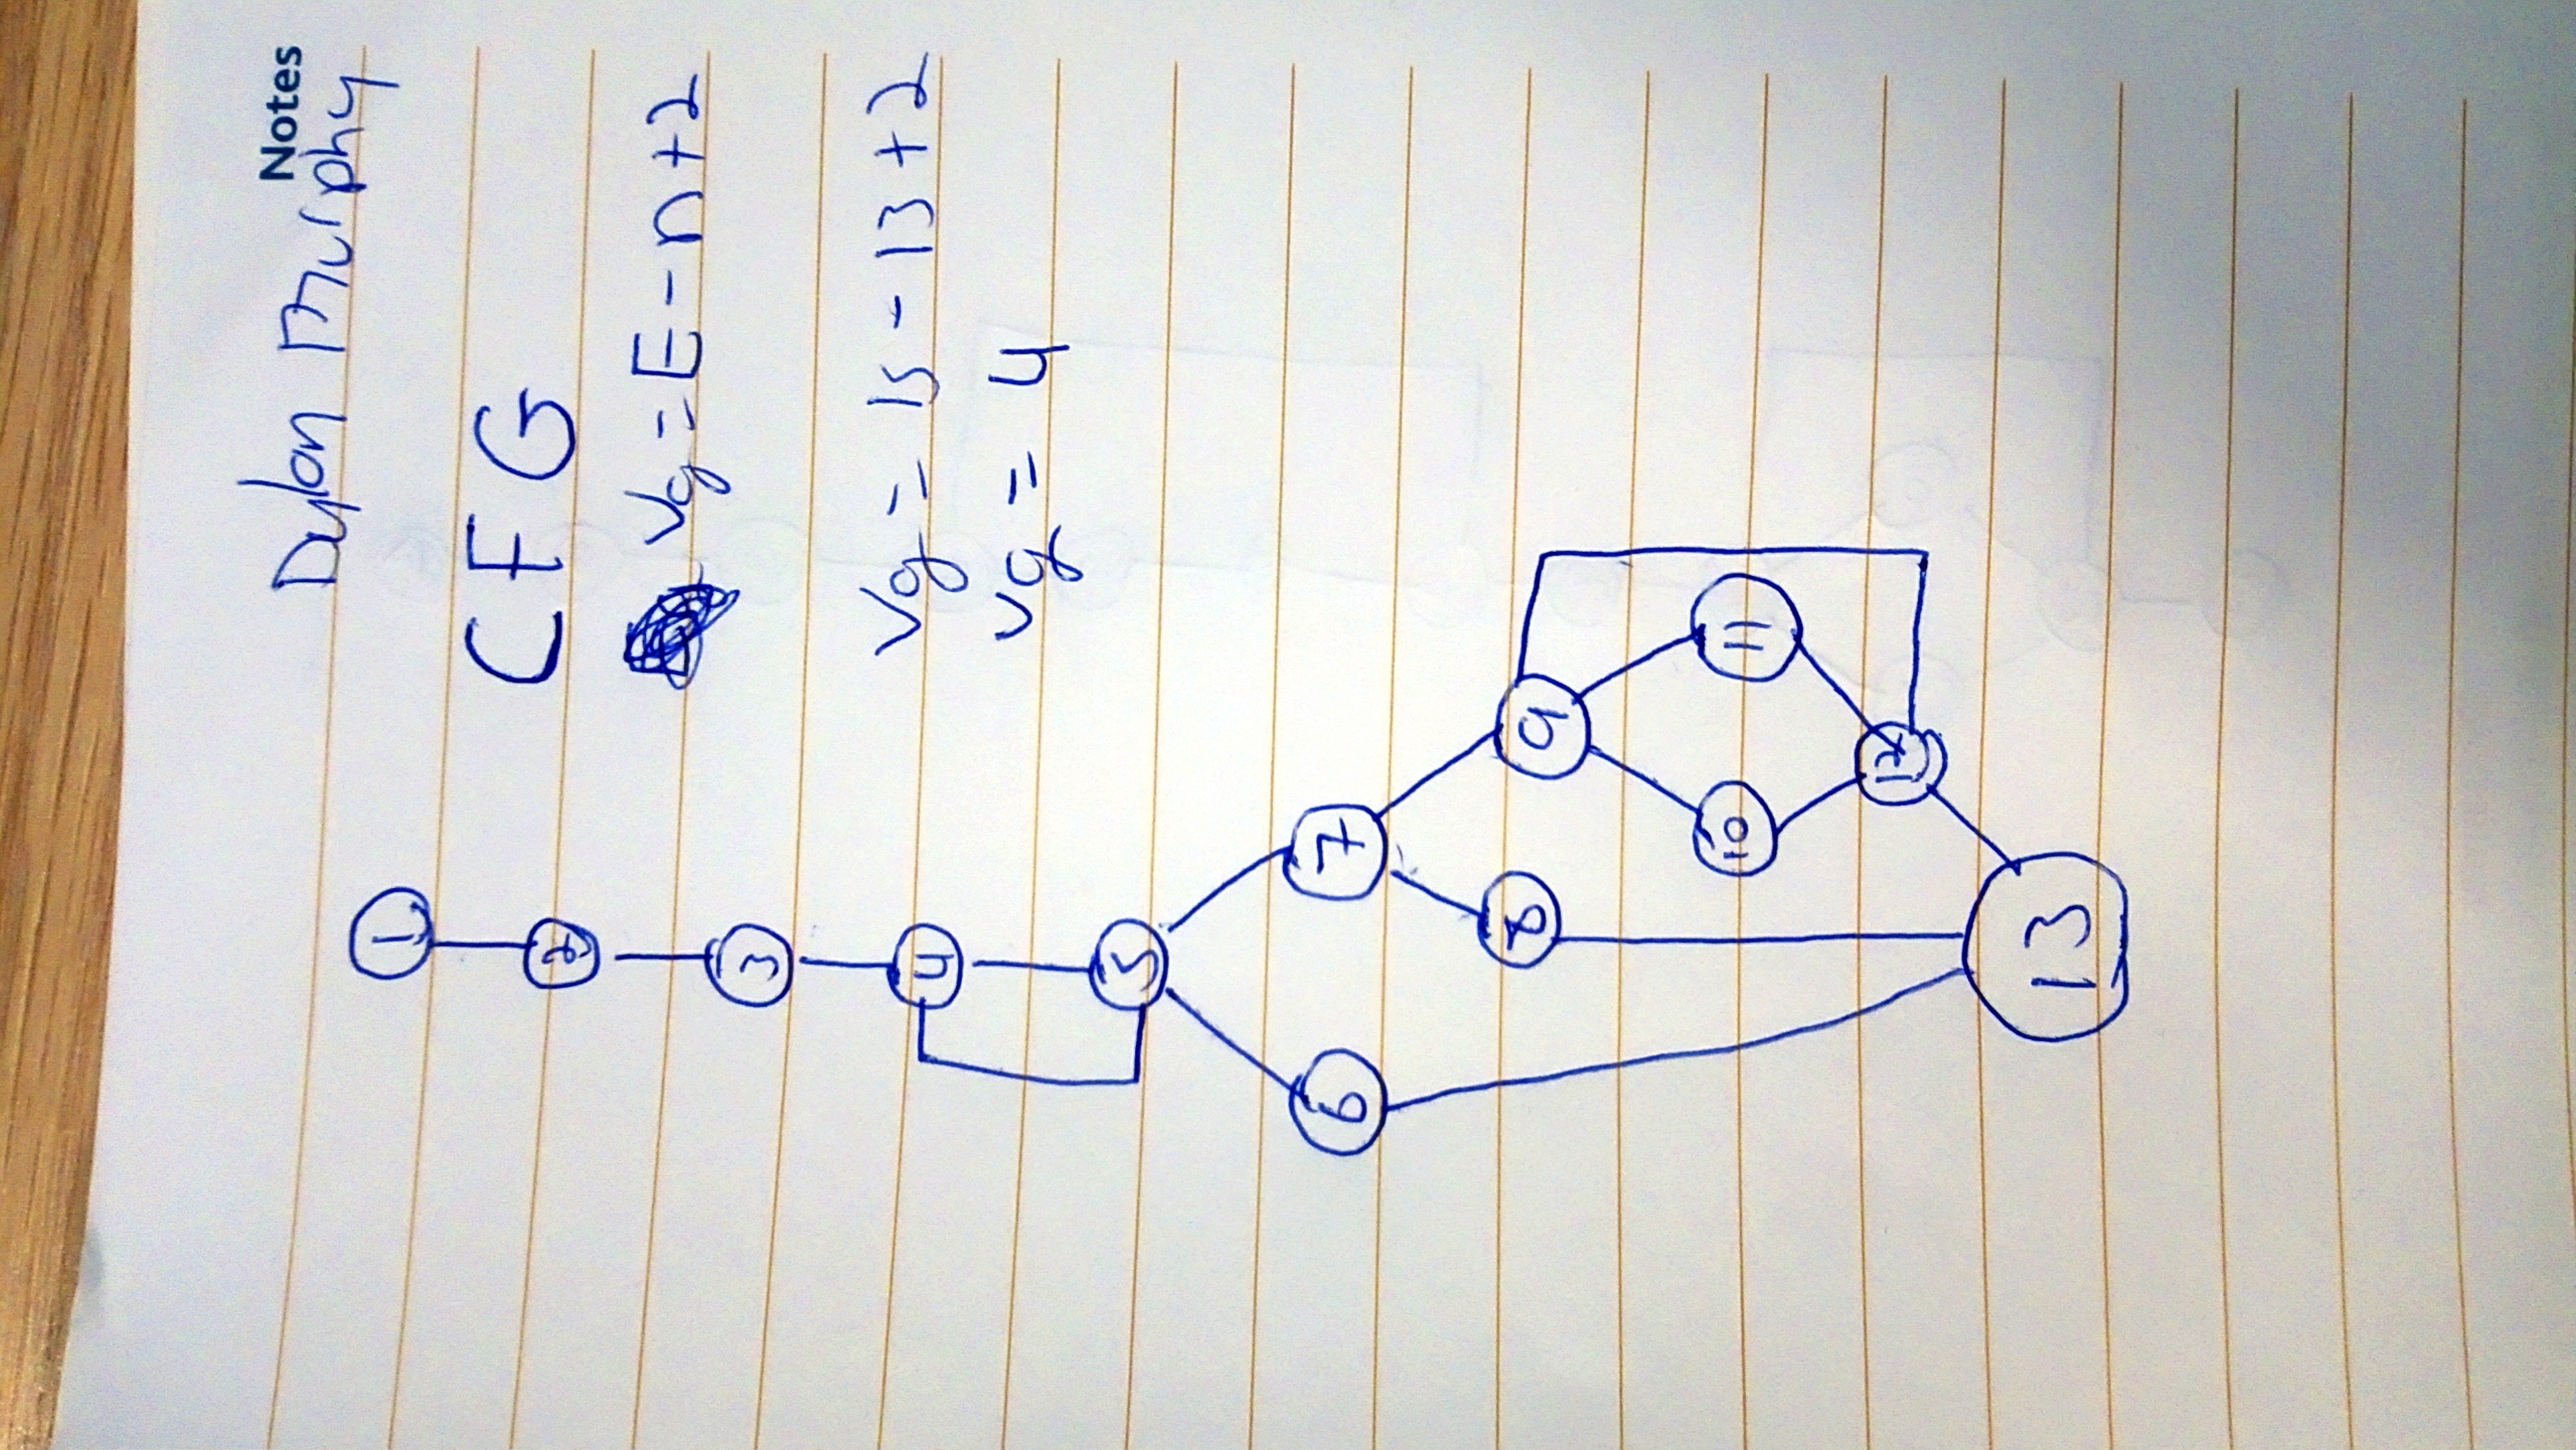 Notes
Dylan Murphy
1
CFG
2
Vg = E - n + 2
3
4
Vg = 15 - 13 + 2
vg = 4
5
6 7
8 9
10 11
12
13